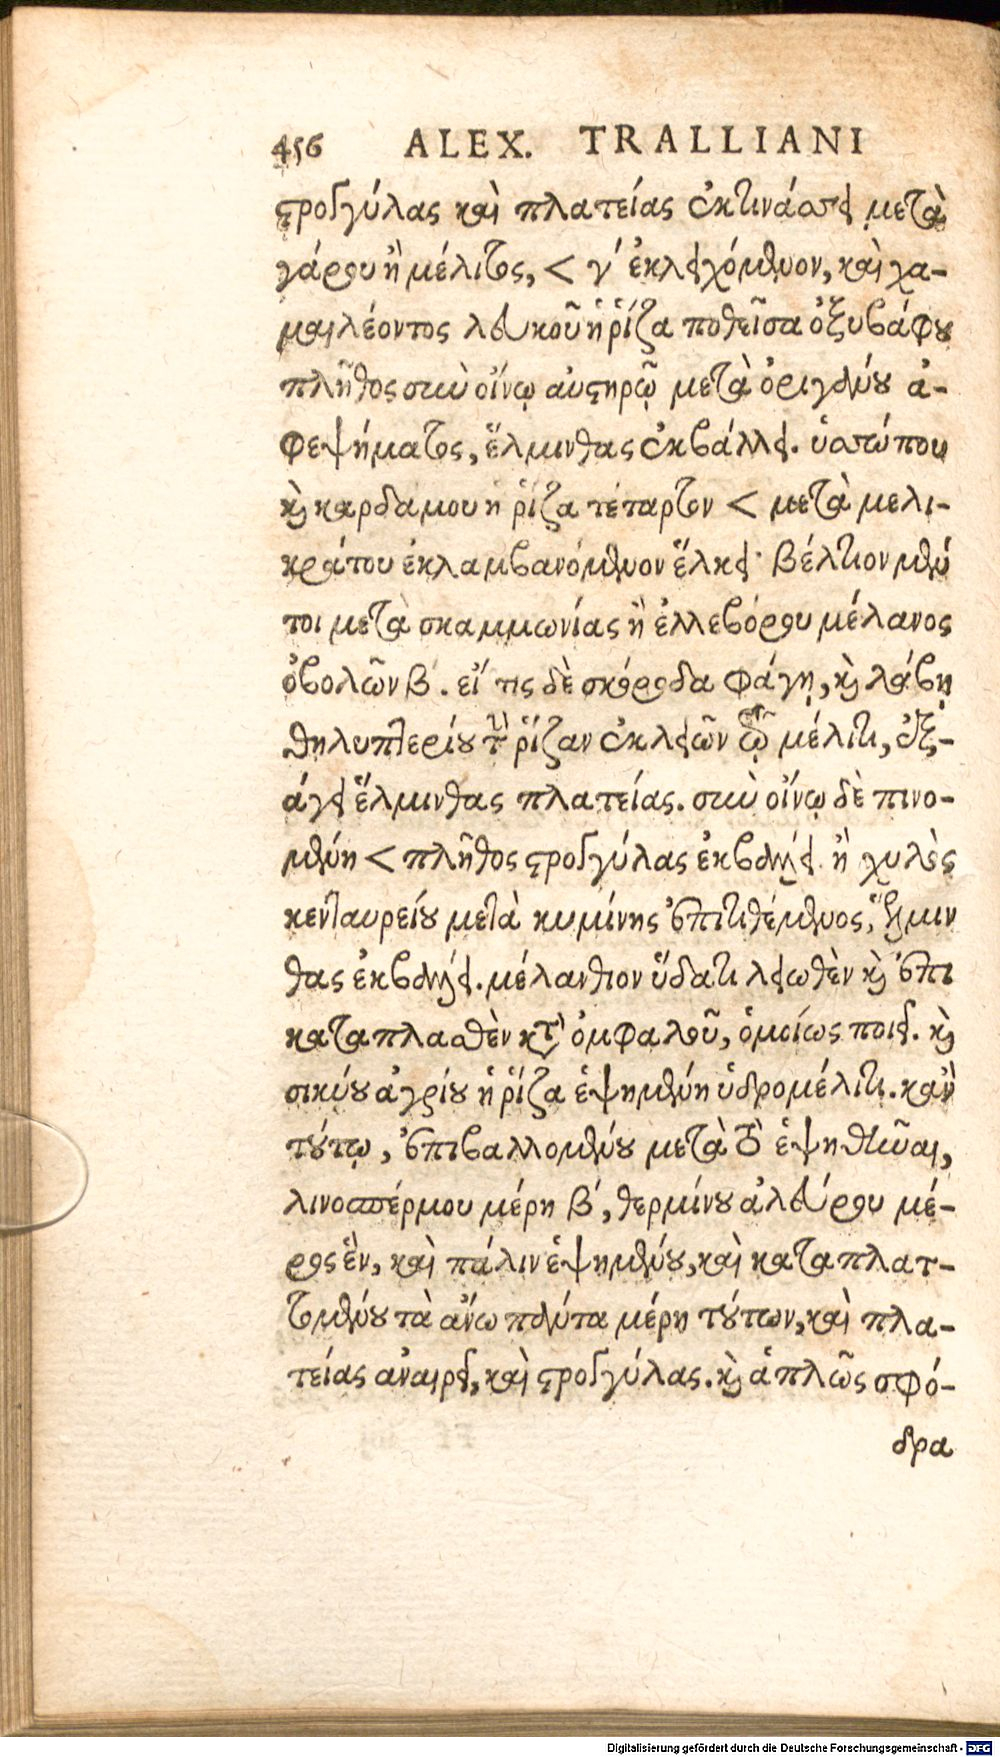 456 ALEX. TRALLIANI
στρογγύλας καὶ πλατείας ἐκτινάσσει μετὰ
γάρου ἢ μέλιτος, < γ´ ἐκλειχόμενον, καὶ χα-
μαιλέοντος λευκοῦ ἡ ῥίζα ποθεῖσα ὀξυβάφου
πλῆθος σὺν οἴνῳ αὐστηρῷ μετὰ ὀριγάνου ἀ-
φεψήματος, ἕλμινθας ἐκβάλλει. ὑσσώπου
καὶ καρδάμου ἡ ῥίζα τέταρτον < μετὰ μελι-
κράτου ἐκλαμβανόμενον ἕλκει· βέλτιον μέν
τοι μετὰ σκαμμωνίας ἢ ἐλλεβόρου μέλανος
ὀβολῶν β. εἴ τις δὲ σκόροδα φάγῃ, καὶ λάβῃ
θηλυπτερίου τὴν ῥίζαν ἐκλειῶν ἐν μέλιτι, ἐξ-
άγει ἕλμινθας πλατείας. σὺν οἴνῳ δὲ πινο-
μένη < πλῆθος στρογγύλας ἐκβάλλει. ἢ χυλὸς
κενταυρείου μετὰ κυμίνης ἐπιτιθέμενος, ἕλμιν
θας ἐκβάλλει. μέλανθιον ὕδατι λειωθὲν καὶ ἐπι
καταπλασθὲν κατὰ ὀμφαλοῦ, ὁμοίως ποιεῖ. καὶ
σικύου ἀγρίου ἡ ῥίζα ἑψημένη ὑδρομέλιτι. κἂν
τούτῳ, ἐπιβαλλομένου μετὰ τὸ ἑψηθῆναι,
λινοσπέρμου μέρη β´, θερμίνου ἀλεύρου μέ-
ρος ἓν, καὶ πάλιν ἑψημένου, καὶ καταπλατ-
τομένου τὰ ἄνω πάντα μέρη τούτων, καὶ πλα-
τείας ἀναιρεῖ, καὶ στρογγύλας. καὶ ἁπλῶς σφό-
δρα
Digitalisierung gefördert durch die Deutsche Forschungsgemeinschaft - DFG